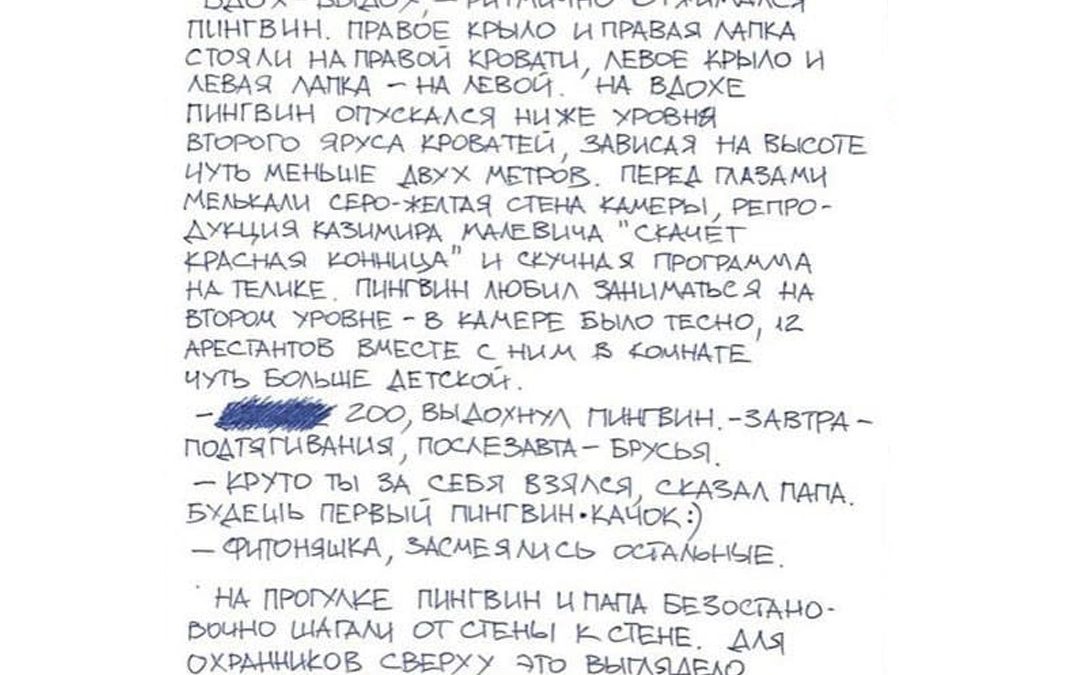 "ВДОХ-ВЫДОХ, – РИТМИЧНО ОТЖИМАЛСЯ
ПИНГВИН. ПРАВОЕ КРЫЛО И ПРАВАЯ ЛАПКА
СТОЯЛИ НА ПРАВОЙ КРОВАТИ, ЛЕВОЕ КРЫЛО И
ЛЕВАЯ ЛАПКА – НА ЛЕВОЙ. НА ВДОХЕ
ПИНГВИН ОПУСКАЛСЯ НИЖЕ УРОВНЯ
ВТОРОГО ЯРУСА КРОВАТЕЙ, ЗАВИСАЯ НА ВЫСОТЕ
ЧУТЬ МЕНЬШЕ ДВУХ МЕТРОВ. ПЕРЕД ГЛАЗАМИ
МЕЛЬКАЛИ СЕРО-ЖЕЛТАЯ СТЕНА КАМЕРЫ, РЕПРО-
ДУКЦИЯ КАЗИМИРА МАЛЕВИЧА "СКАЧЕТ
КРАСНАЯ КОННИЦА" И СКУЧНАЯ ПРОГРАММА
НА ТЕЛИКЕ. ПИНГВИН ЛЮБИЛ ЗАНИМАТЬСЯ НА
ВТОРОМ УРОВНЕ – В КАМЕРЕ БЫЛО ТЕСНО, 12
АРЕСТАНТОВ ВМЕСТЕ С НИМ В КОМНАТЕ
ЧУТЬ БОЛЬШЕ ДЕТСКОЙ.
– 200, ВЫДОХНУЛ ПИНГВИН. – ЗАВТРА –
ПОДТЯГИВАНИЯ, ПОСЛЕЗАВТА – БРУСЬЯ.
– КРУТО ТЫ ЗА СЕБЯ ВЗЯЛСЯ, СКАЗАЛ ПАПА.
БУДЕШЬ ПЕРВЫЙ ПИНГВИН·КАЧОК :)
– ФИТОНЯШКА, ЗАСМЕЯЛИСЬ ОСТАЛЬНЫЕ.
НА ПРОГУЛКЕ ПИНГВИН И ПАПА БЕЗОСТАНО-
ВОЧНО ШАГАЛИ ОТ СТЕНЫ К СТЕНЕ. ДЛЯ
ОХРАННИКОВ СВЕРХУ ЭТО ВЫГЛЯДЕЛО